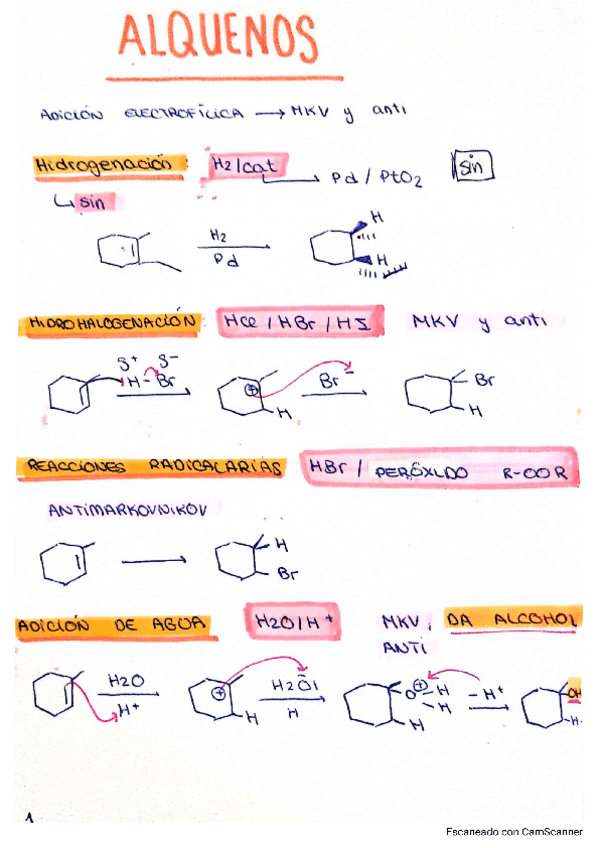 ALQUENOS
ADICIÓN ELECTROFÍLICA → MKV y anti
Hidrogenación: H2/cat → Pd / PtO2 sin
↳ sin
H2
Pd
H
H
HIDROHALOGENACIÓN: HCl / HBr / HI MKV y anti
δ+ δ-
H-Br
⊕
H
Br-
Br
H
REACCIONES RADICALARIAS HBr / PERÓXIDO R-OOR
ANTIMARKOVNIKOV
H
Br
ADICIÓN DE AGUA H2O/H+ MKV, DA ALCOHOL
ANTI
H2O
H+
⊕
H
H2O
H
O⊕-H
-H
H
-H+
OH
-H
1
Escaneado con CamScanner